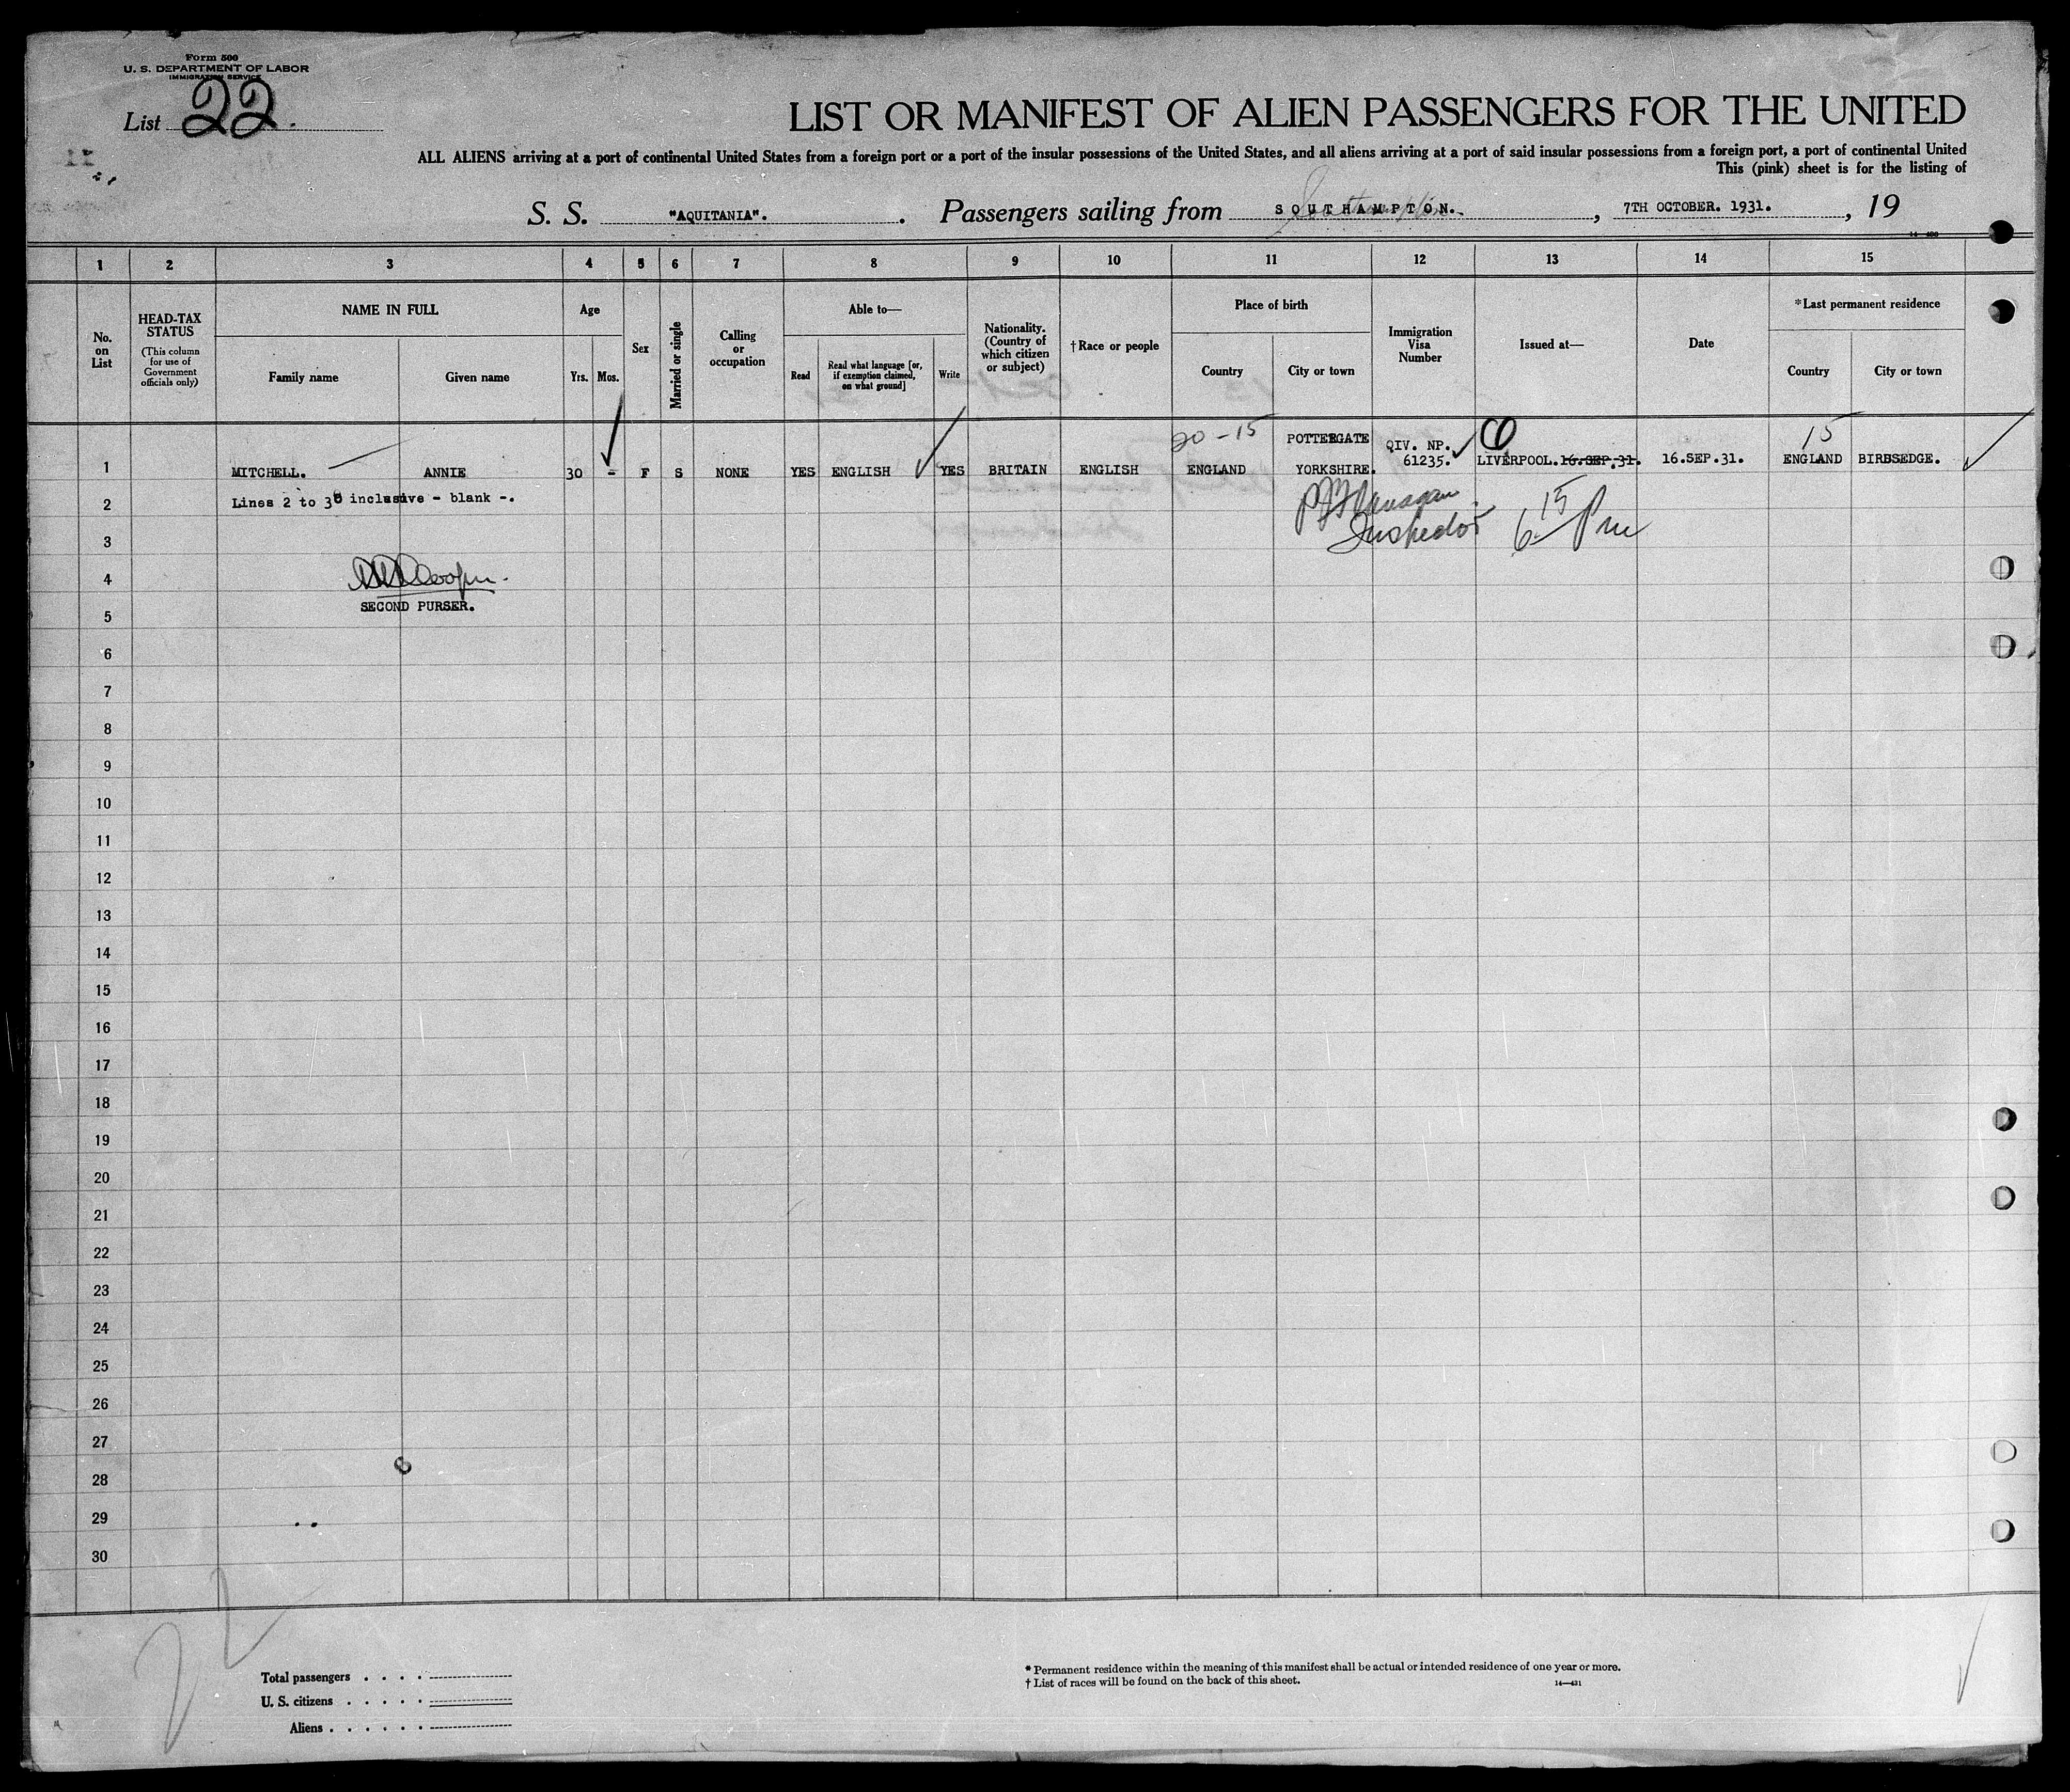 Form 500
U. S. DEPARTMENT OF LABOR
IMMIGRATION SERVICE
List 22.
LIST OR MANIFEST OF ALIEN PASSENGERS FOR THE UNITED
ALL ALIENS arriving at a port of continental United States from a foreign port or a port of the insular possessions of the United States, and all aliens arriving at a port of said insular possessions from a foreign port, a port of continental United
This (pink) sheet is for the listing of
S. S. "AQUITANIA". . Passengers sailing from SOUTHAMPTON. , 7TH OCTOBER. 1931. , 19
1 2 3 4 5 6 7 8 9 10 11 12 13 14 15
No. on List
HEAD-TAX STATUS
(This column for use of Government officials only)
NAME IN FULL
Family name
Given name
Age
Yrs.
Mos.
Sex
Married or single
Calling or occupation
Able to—
Read
Read what language [or, if exemption claimed, on what ground]
Write
Nationality. (Country of which citizen or subject)
†Race or people
Place of birth
Country
City or town
Immigration Visa Number
Issued at—
Date
*Last permanent residence
Country
City or town
20-15 POTTERGATE QIV. NP. 15
1 MITCHELL. ANNIE 30 - F S NONE YES ENGLISH YES BRITAIN ENGLISH ENGLAND YORKSHIRE. 61235. LIVERPOOL. 16.SEP.31. 16.SEP.31. ENGLAND BIRDSEDGE.
2 Lines 2 to 30 inclusive - blank -.
3 Inspector 6 15 Pm
4
SECOND PURSER.
5
6
7
8
9
10
11
12
13
14
15
16
17
18
19
20
21
22
23
24
25
26
27
28
29
30
22
Total passengers . . . .
U. S. citizens . . . . .
Aliens . . . . . .
* Permanent residence within the meaning of this manifest shall be actual or intended residence of one year or more.
† List of races will be found on the back of this sheet.
14—431